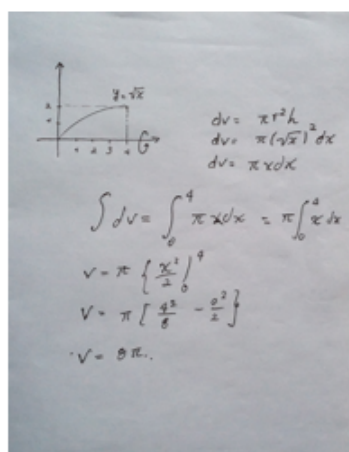 y = √x
2
1
1 2 3 4
dv = πr²h
dv = π(√x)² dx
dv = πxdx
∫ dv = ∫₀⁴ πxdx = π∫₀⁴ x dx
v = π [x²/2]₀⁴
V = π [4²/8 - 0²/2]
V = 8π.